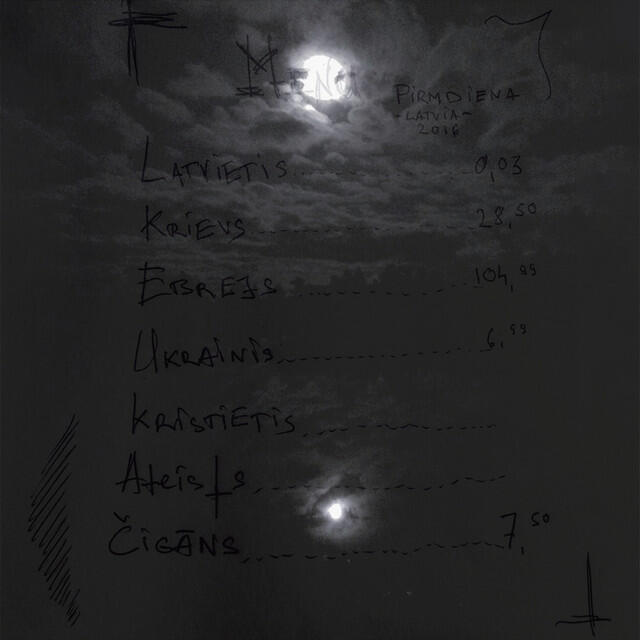 MENU
PIRMDIENA
-LATVIA-
2016
LATVIETIS 0,03
KRIEVS 28,50
EBREJS 104,99
UKRAINIS 6,99
KRISTIETIS
ATEISTS
ČIGĀNS 7,50